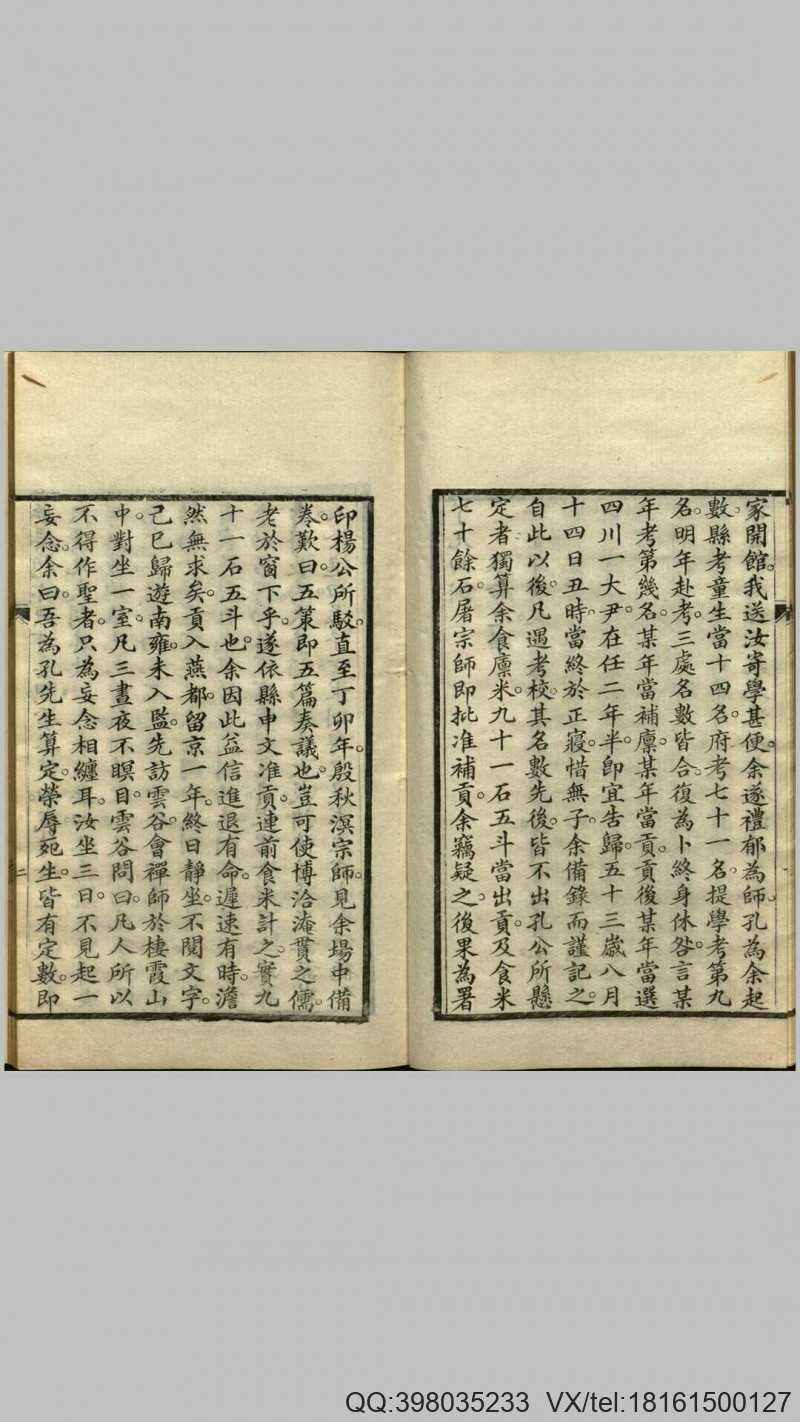 家開館。我送汝寄學甚便。余遂禮郁為師。孔為余起
數。縣考童生。當十四名。府考七十一名。提學考第九
名。明年赴考。三處名數皆合。復為卜終身休咎。言某
年考第幾名。某年當補廩。某年當貢。貢後某年當選
四川一大尹。在任二年半。即宜告歸。五十三歲八月
十四日丑時。當終於正寢。惜無子。余備錄而謹記之。
自此以後。凡遇考校。其名數先後。皆不出孔公所懸
定者。獨算余食廩米九十一石五斗當出貢。及食米
七十餘石。屠宗師即批准補貢。余竊疑之。後果為署
印楊公所駁。直至丁卯年。殷秋溟宗師。見余場中備
卷。歎曰。五策即五篇奏議也。豈可使博洽淹貫之儒。
老於窗下乎。遂依縣申文准貢。連前食米計之。實九
十一石五斗也。余因此益信進退有命。遲速有時。澹
然無求矣。貢入燕都。留京一年。終日靜坐。不閱文字。
己巳歸。遊南雍。未入監。先訪雲谷會禪師於棲霞山
中。對坐一室。凡三晝夜不瞑目。雲谷問曰。凡人所以
不得作聖者。只為妄念相纏耳。汝坐三日。不見起一
妄念。余曰。吾為孔先生算定。榮辱死生。皆有定數。即
二
QQ:398035233 VX/tel:18161500127